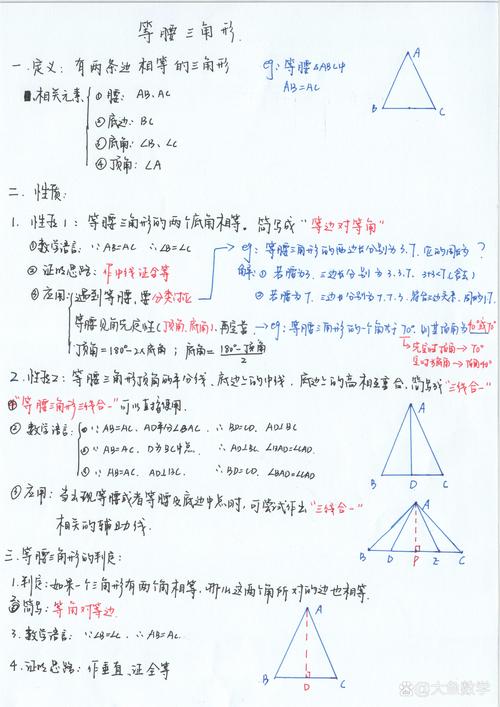 等腰三角形.
一.定义：有两条边相等的三角形
eg：等腰△ABC中
AB=AC
A
B
C
相关元素
①腰：AB、AC
②底边：BC
③底角：∠B、∠C
④顶角：∠A
二.性质：
1.性质1：等腰三角形的两个底角相等。简写成“等边对等角”
①数学语言：∵AB=AC ∴∠B=∠C
eg：等腰三角形的两边长分别为3.7.它的周长为 ?
②证明思路：作中线证全等
解：①若腰为3，三边长分别为3.3.7. 3+3<7(舍去)
③应用：遇到等腰，要分类讨论
②若腰为7，三边长分别为7.7.3.符合三边关系，周长为17.
等腰见角先定性(顶角，底角)，再定量.
eg：等腰三角形的一个角为70°.则其顶角为40°或70°
先定好顶角→70°
定好底角→顶角40°
顶角=180°-2×底角；底角=180°-顶角/2
2.性质2：等腰三角形顶角的平分线，底边上的中线，底边上的高相互重合，简写成“三线合一”
①“等腰三角形三线合一”可以直接使用.
②数学语言：
①∵AB=AC，AD平分∠BAC，∴BD=CD，AD⊥BC
②∵AB=AC，D为BC中点 ∴AD⊥BC，∠BAD=∠CAD.
③∵AB=AC，AD⊥BC. ∴BD=CD，∠BAD=∠CAD
A
B
D
C
③应用：当出现等腰或者等腰及底边中点时，可尝试作出“三线合一”
相关的辅助线.
A
B
D
P
E
C
三.等腰三角形的判定：
1.判定：如果一个三角形有两个角相等，那么这两个角所对的边也相等.
简写：等角对等边.
3.数学语言：∵∠B=∠C，∴AB=AC
4.证明思路：作垂直，证全等
A
B
D
C
@大鱼数学